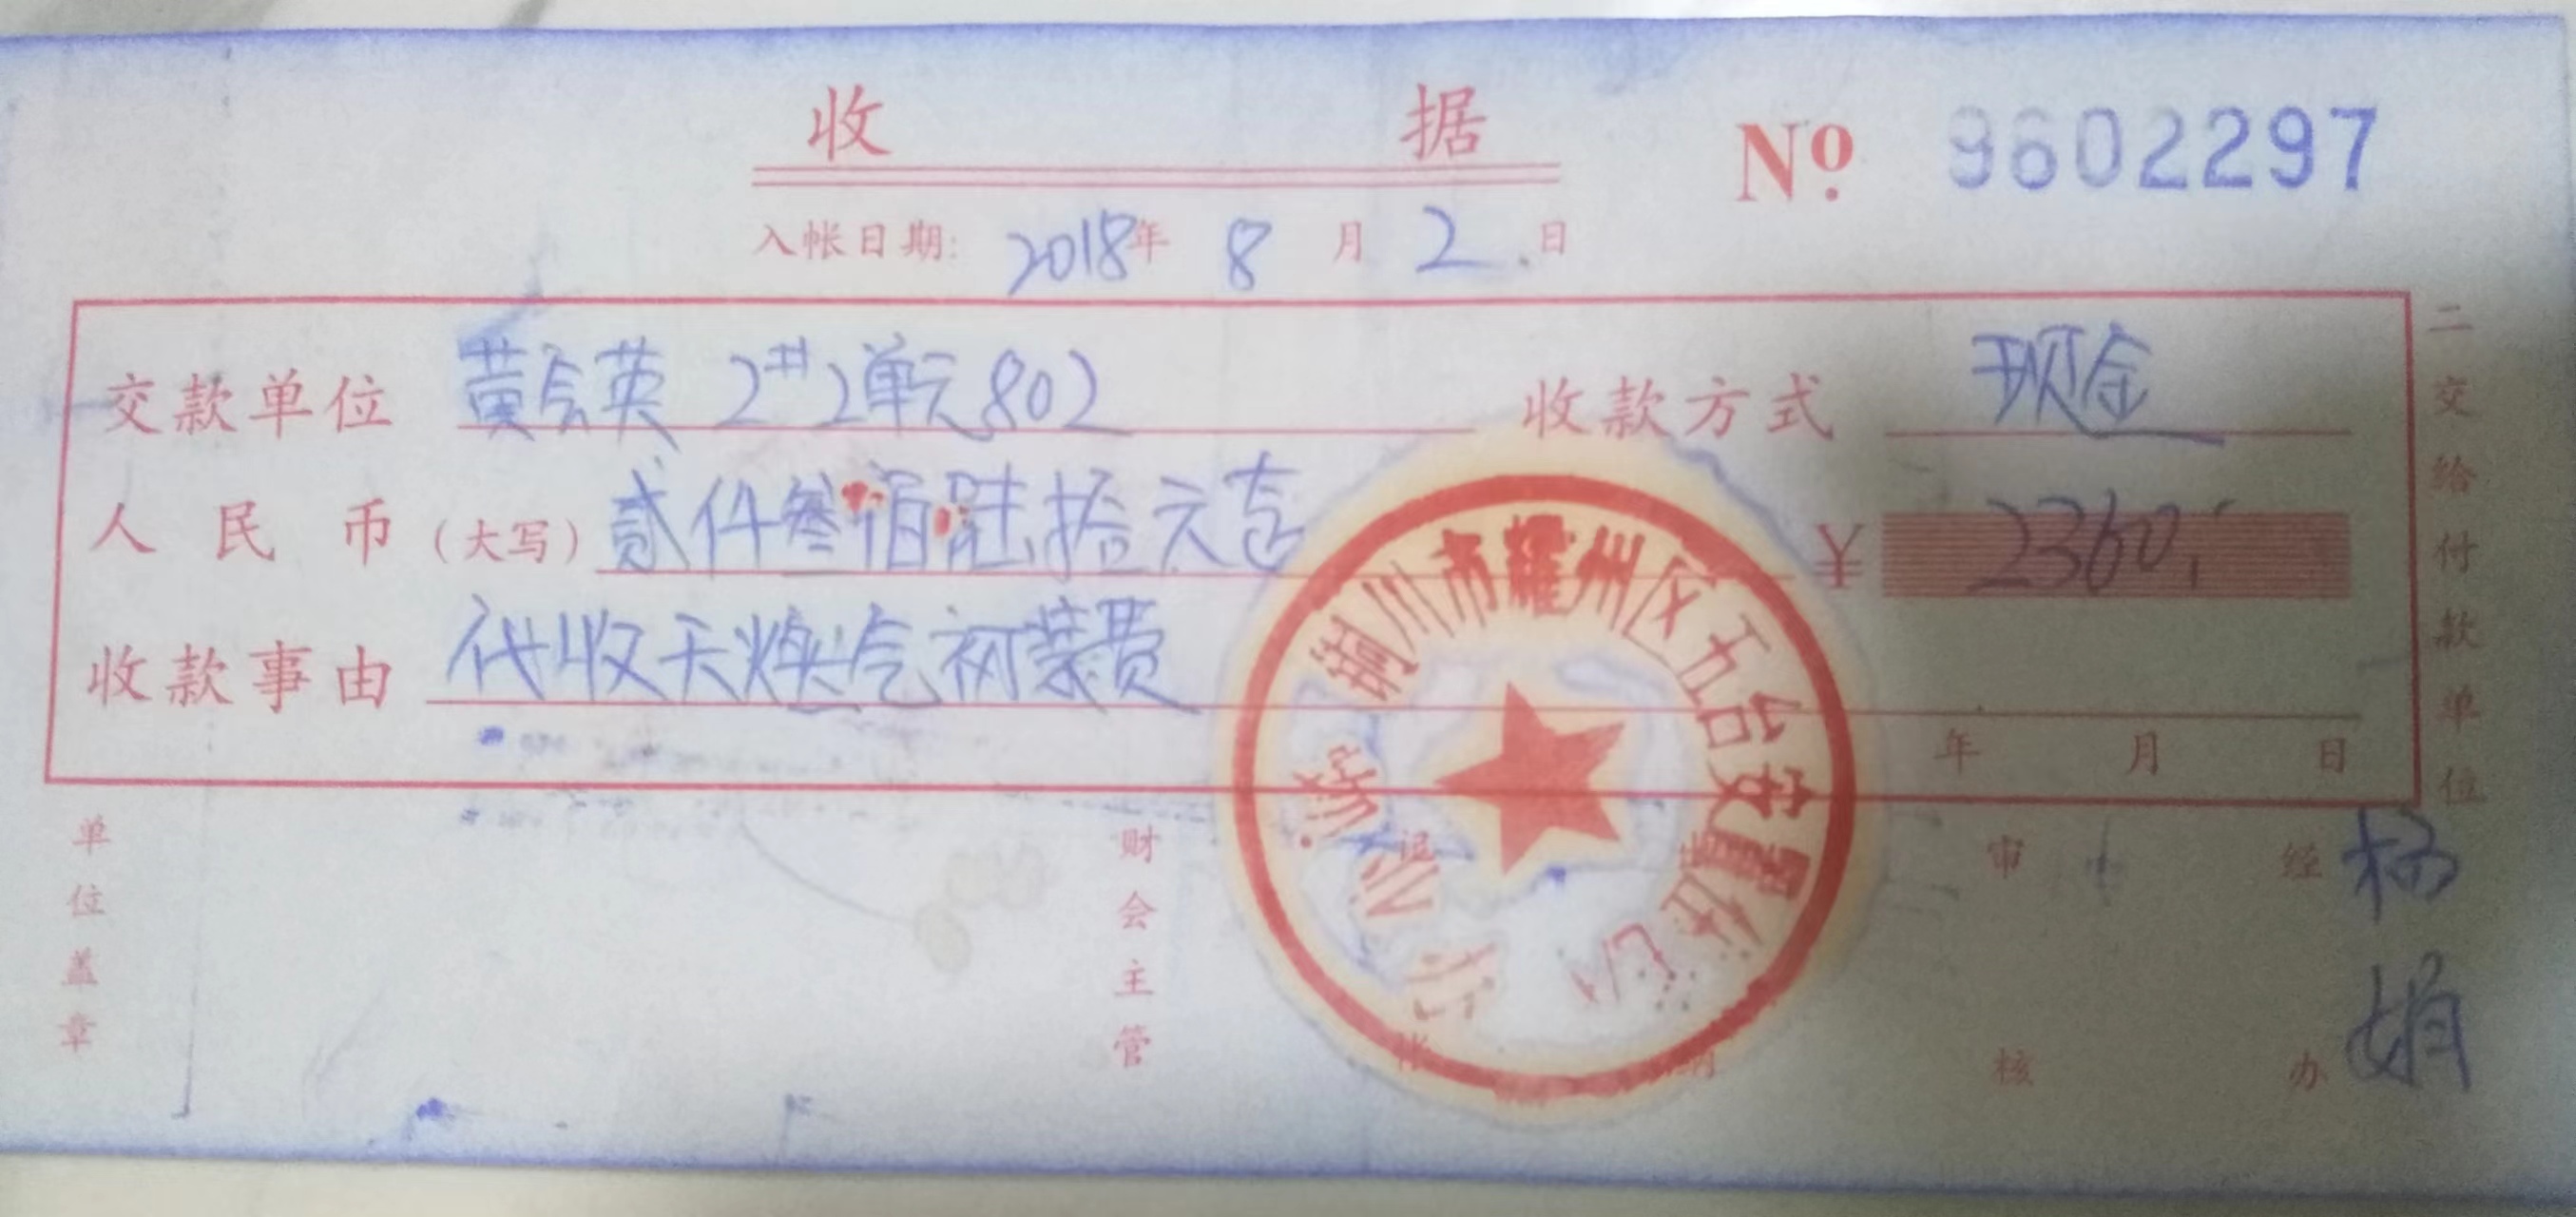 收 据
№ 9602297
入帐日期: 2018年 8 月 2 日
交款单位 黄会英 2#2单元802 收款方式 现金
人民币(大写) 贰仟叁佰陆拾元整 ¥ 2360.-
收款事由 代收天燃气初装费
年 月 日
二交给付款单位
单位盖章
财会主管
记帐
审核
经办 杨娟
铜川市耀州区五台安置